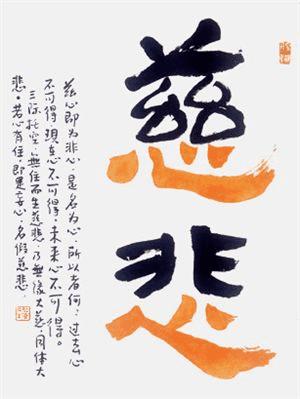 慈悲
慈心即为非心,是名为心,所以者何?过去心
不可得,現在心不可得,未来心不可得。
三际托空,無住而生慈悲,乃無缘大慈,同体大
悲。若心有住,即是妄心,名假慈悲。